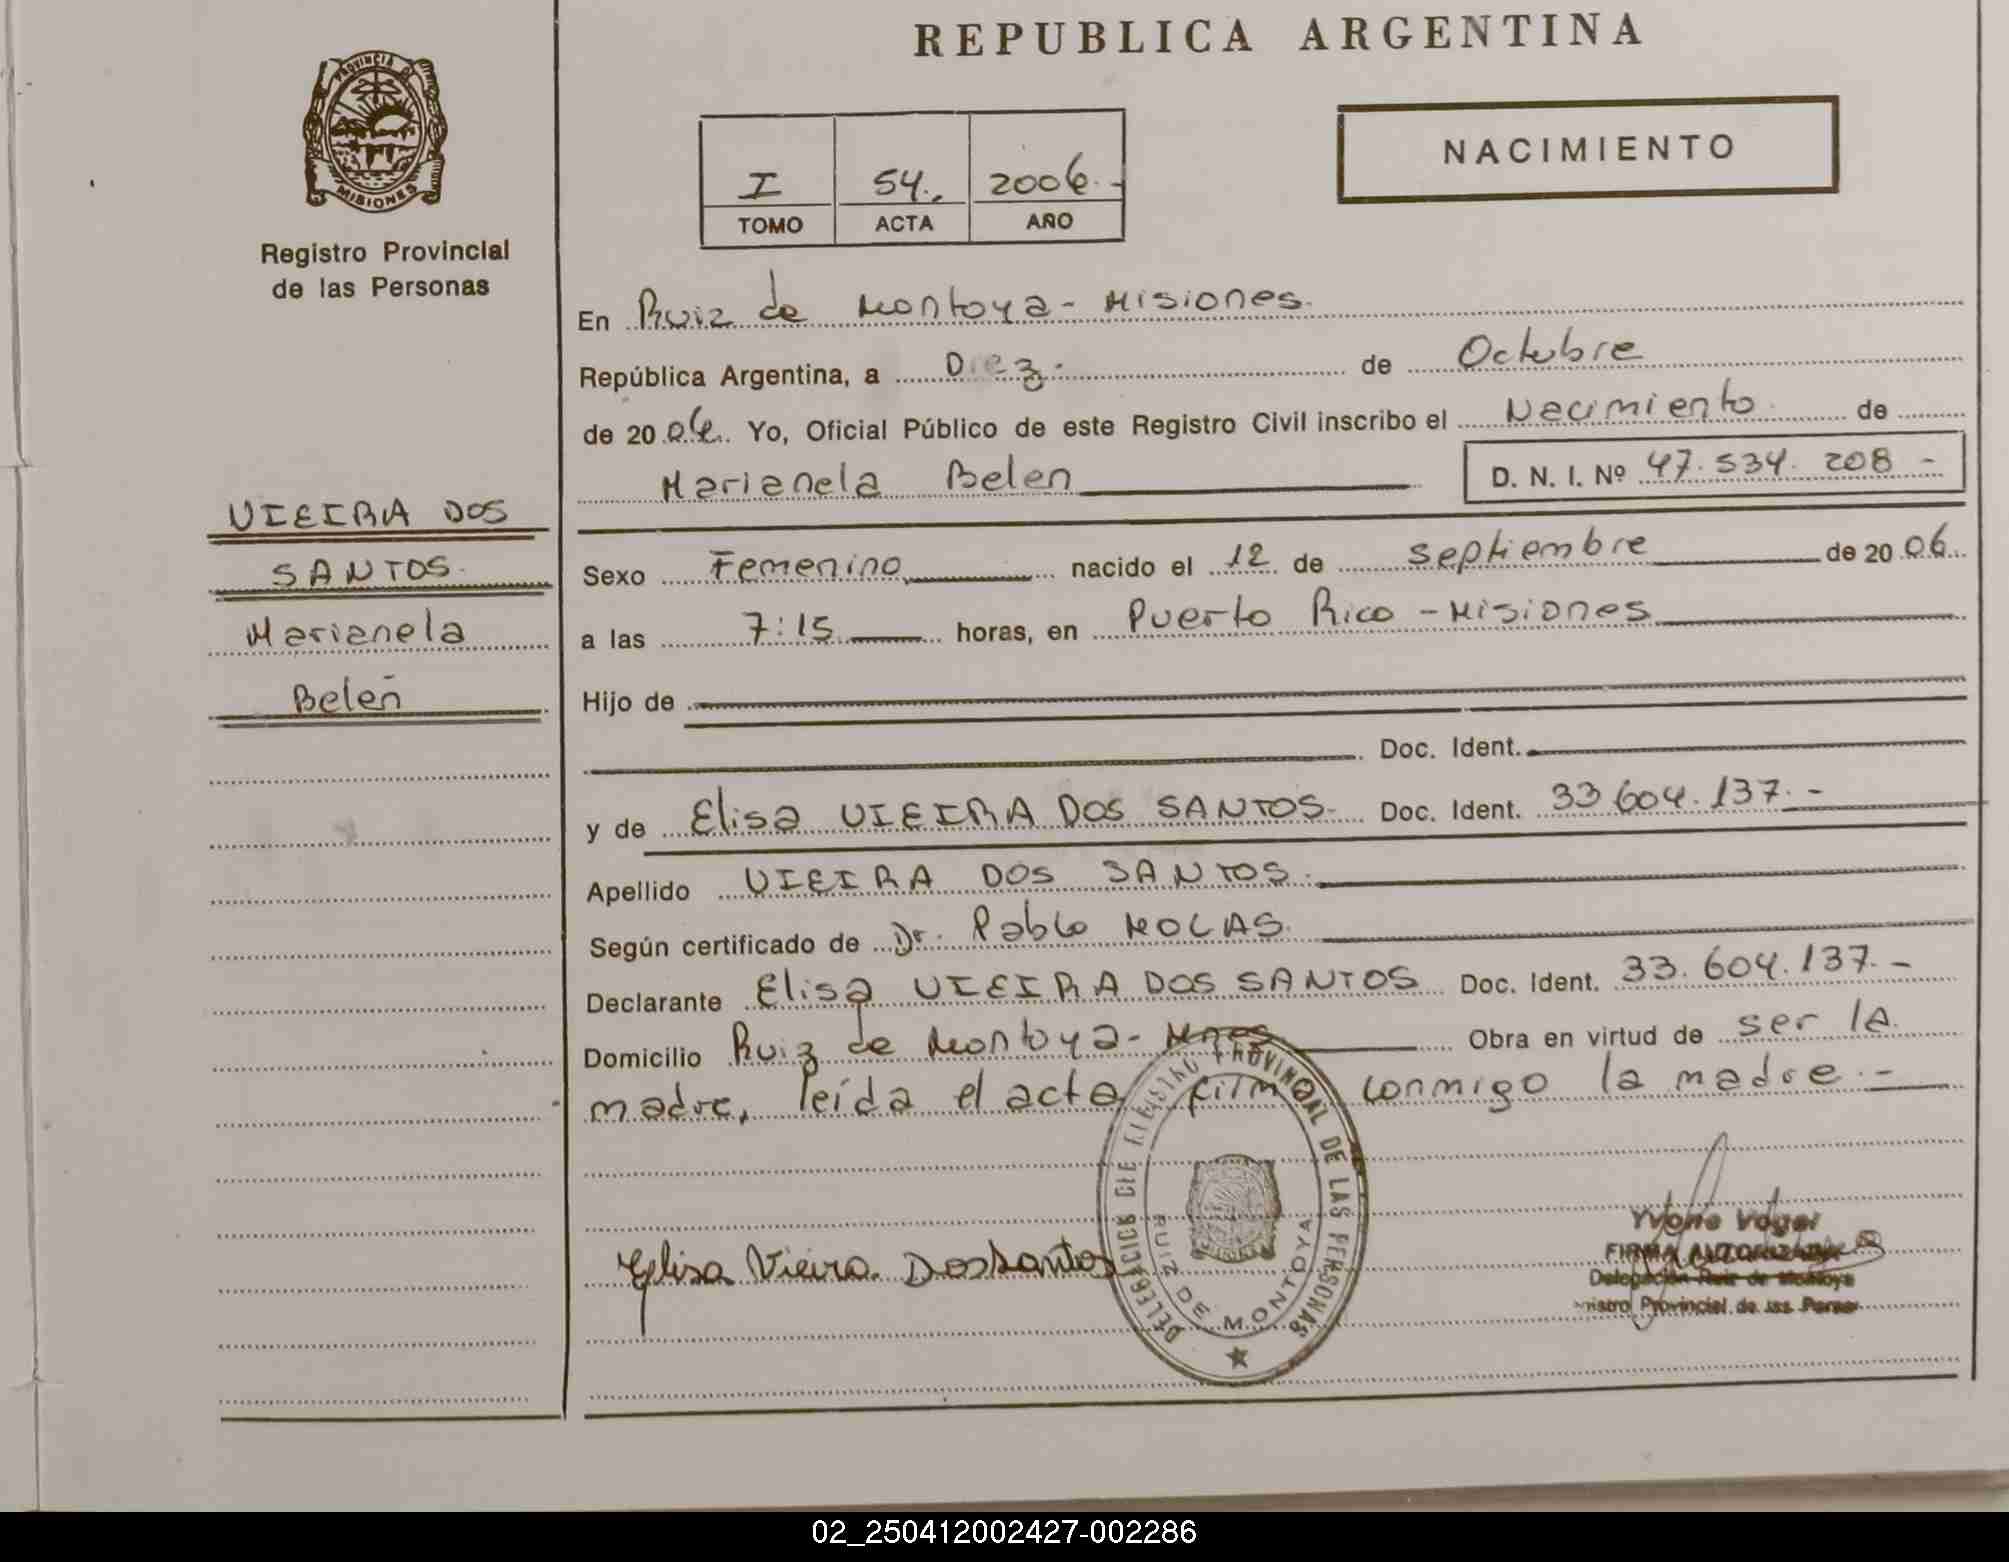 REPUBLICA ARGENTINA
PROVINCIA DE
MISIONES
Registro Provincial
de las Personas
I 54. 2006.-
TOMO ACTA AÑO
NACIMIENTO
En Ruiz de Montoya - Misiones.
República Argentina, a Diez. de Octubre
de 20 06. Yo, Oficial Público de este Registro Civil inscribo el Nacimiento de
Marianela Belen D. N. I. Nº 47.534.208 -
VIEIRA DOS
SANTOS.
Marianela
Belen
Sexo Femenino nacido el 12 de septiembre de 20 06.
a las 7:15 horas, en Puerto Rico - Misiones
Hijo de
Doc. Ident.
y de Elisa VIEIRA DOS SANTOS. Doc. Ident. 33.604.137.-
Apellido VIEIRA DOS SANTOS.
Según certificado de Dr. Pablo MOLAS.
Declarante Elisa VIEIRA DOS SANTOS Doc. Ident. 33.604.137.-
Domicilio Ruiz de Montoya - Mnes Obra en virtud de ser la
madre, leída el acta firma conmigo la madre.-
PROVINCIAL DE LAS PERSONAS
RUIZ DE MONTOYA
Elisa Vieira Dossantos
Yvone Vogel
FIRMA AUTORIZADA
Delegación Ruiz de Montoya
Provincial de las
02_250412002427-002286